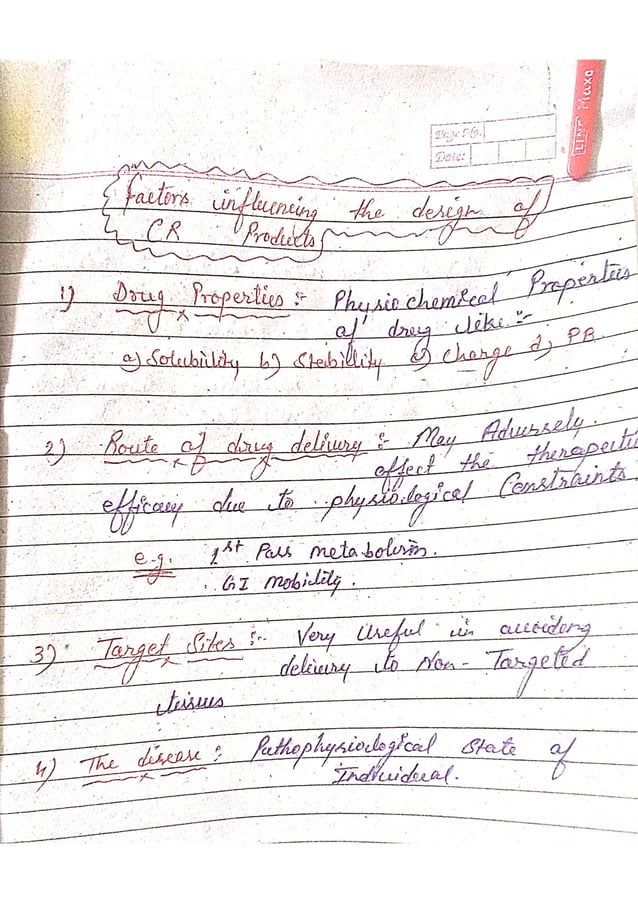 Page No.
Date:
LINC Maxo
Factors influencing the design of
CR Products
1) Drug Properties :- Physiochemical Properties
of drug like :-
a) Solubility b) Stability c) Charge d) PB
2) Route of drug delivery :- May Adversely
effect the therapeutic
efficacy due to physiological Constraints.
e.g. 1st Pass metabolism.
GI mobility.
3) Target Sites :- Very Useful in avoiding
delivery to Non-Targeted
tissues
4) The disease :- Pathophysiological State of
Individual.